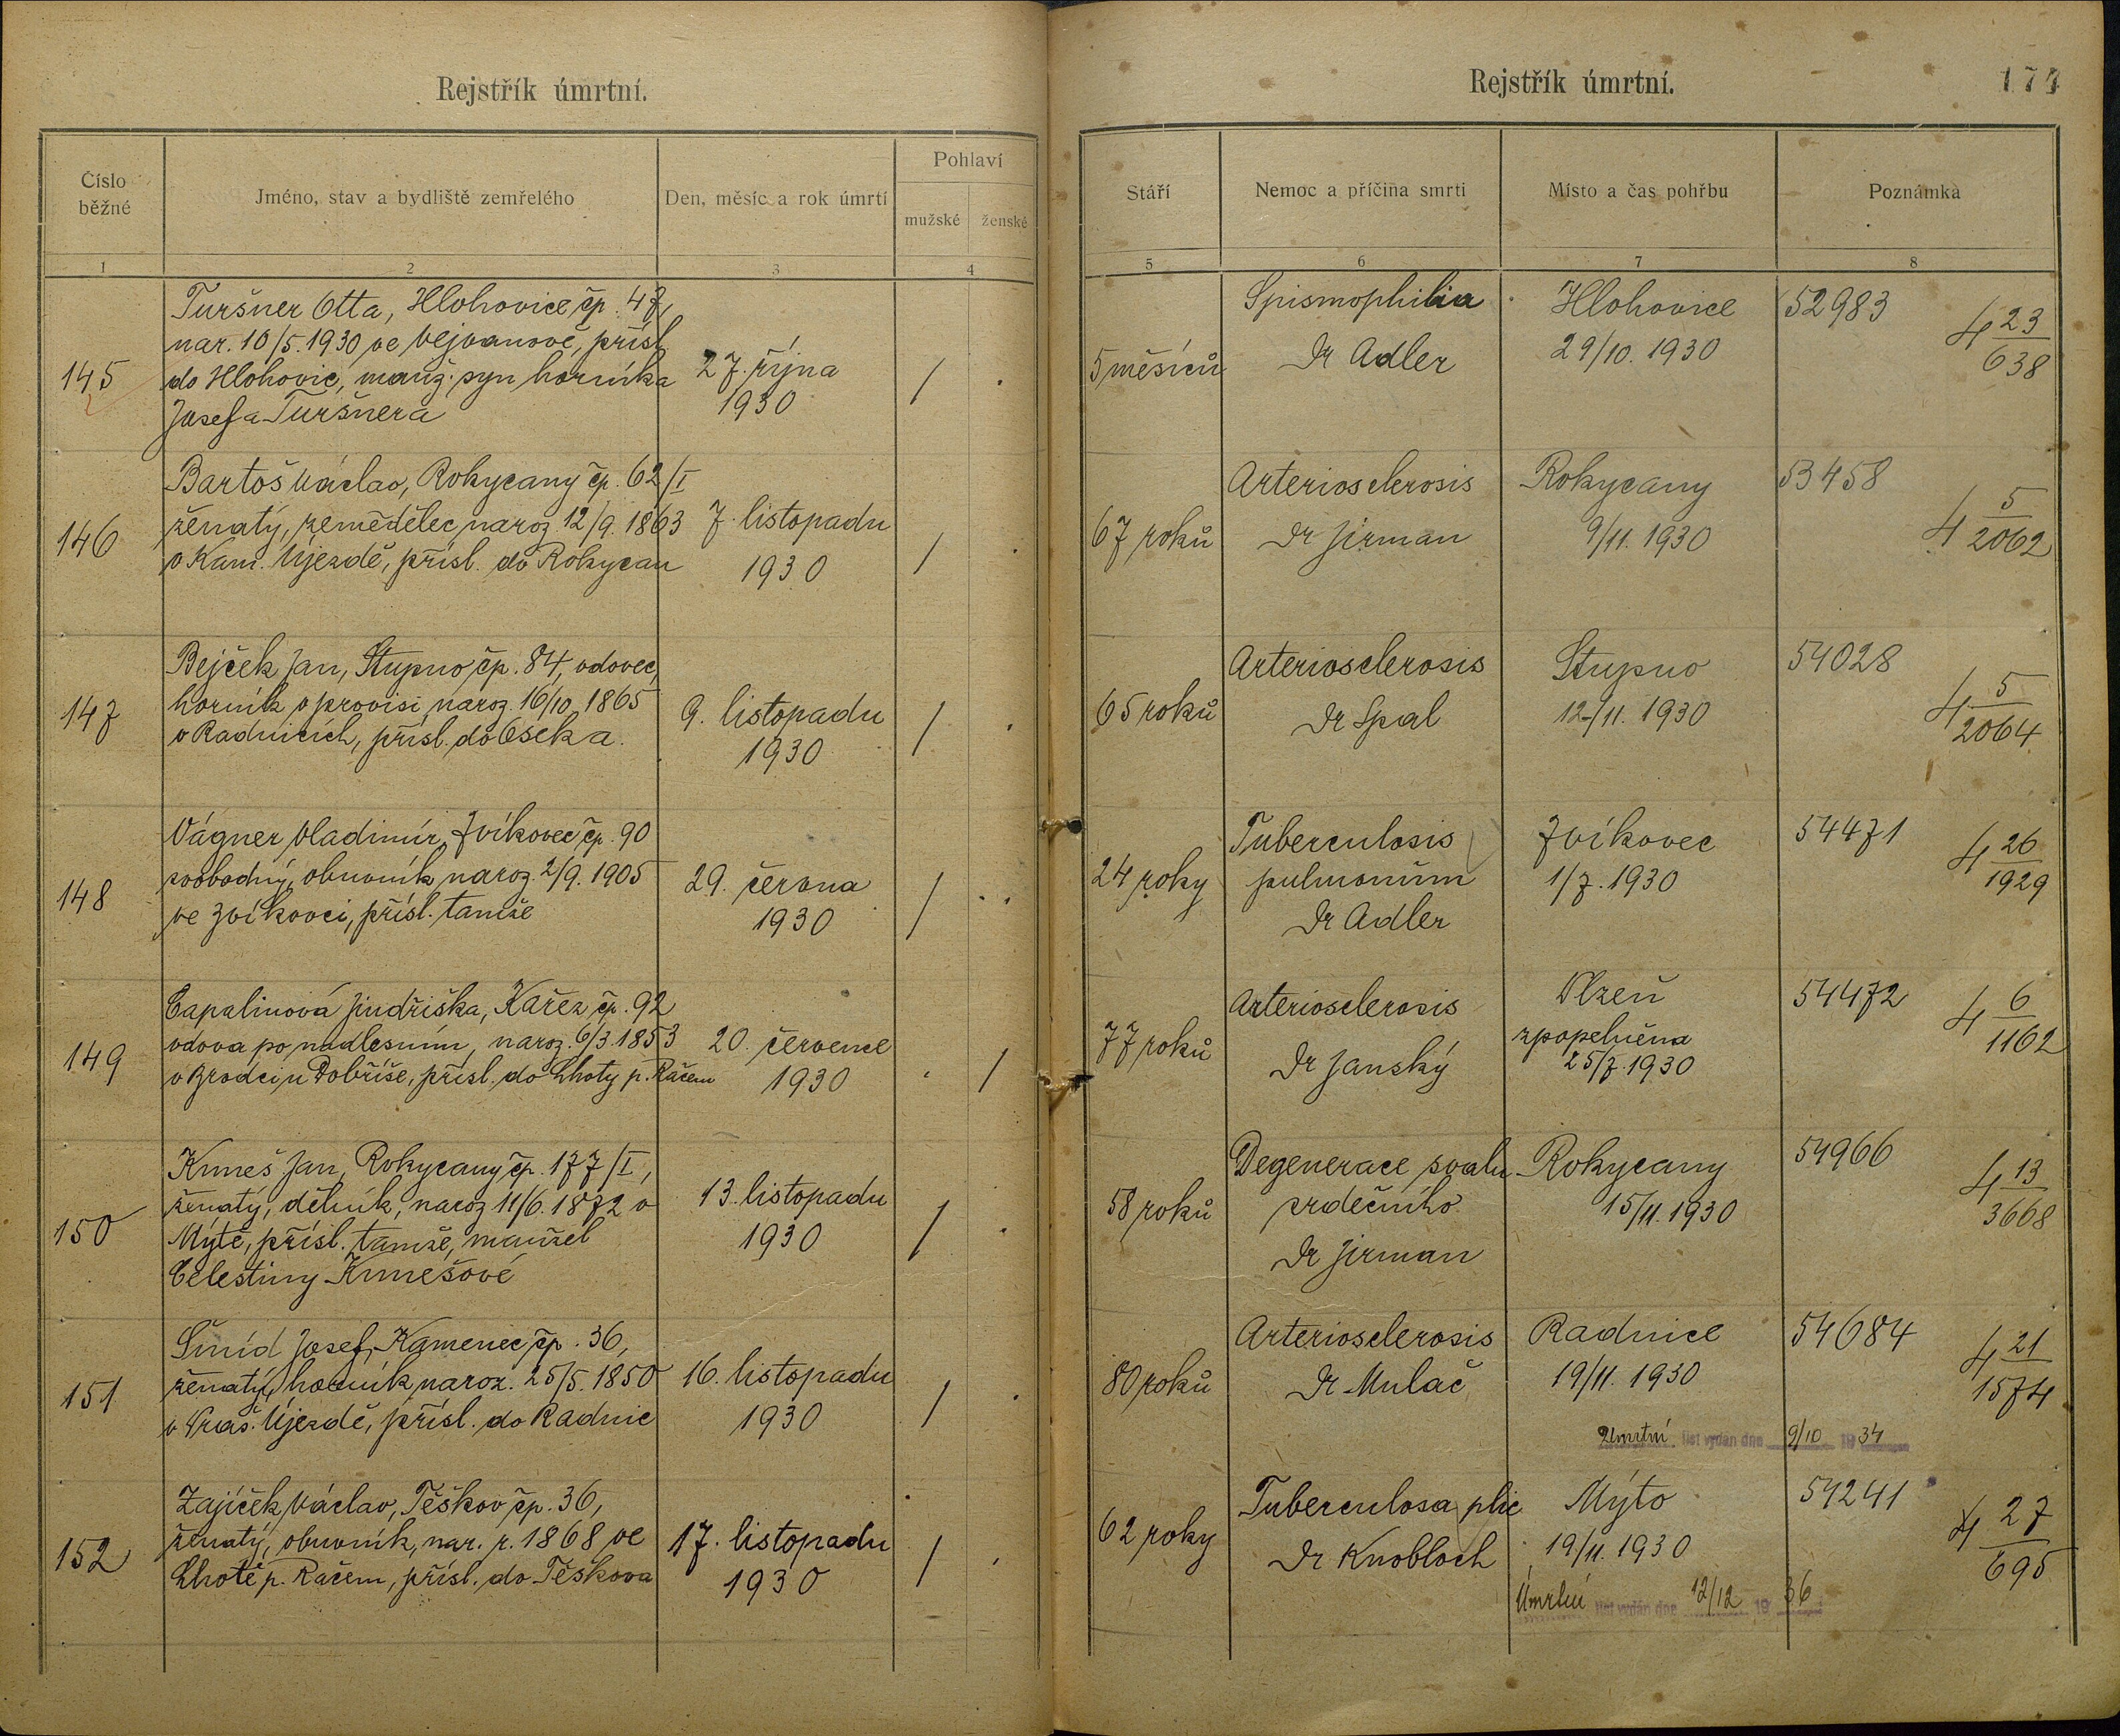 Rejstřík úmrtní.
Číslo běžné
Jméno, stav a bydliště zemřelého
Den, měsíc a rok úmrtí
Pohlaví
mužské
ženské
1
2
3
4
145
Turšner Otta, Hlohovice čp. 47,
nar. 10/5. 1930 ve Vejvanově, přísl.
do Hlohovic, manž. syn horníka
Josefa Turšnera
27. října
1930
/
146
Bartoš Václav, Rokycany čp. 62/I
ženatý, zemědělec, naroz 12/9. 1863
v Kam. Újezdě, přísl. do Rokycan
7. listopadu
1930
/
147
Bejček Jan, Stupno čp. 84, vdovec,
horník v provisi, naroz. 16/10. 1865
v Radnicích, přísl. do Oseka.
9. listopadu
1930
/
148
Vágner Vladimír, Zvíkovec čp. 90
svobodný, obuvník, naroz. 2/9. 1905
ve Zvíkovci, přísl. tamže
29. června
1930
/
149
Capalinová Jindřiška, Kařez čp. 92
vdova po nadlesním, naroz. 6/3. 1853
v Brodci u Dobříše, přísl. do Lhoty p. Račem
20. července
1930
/
150
Kuneš Jan, Rokycany čp. 177/I,
ženatý, dělník, naroz 11/6. 1872 v
Mýtě, přísl. tamže, manžel
Celestiny Kunešové
13. listopadu
1930
/
151
Šmíd Josef, Kamenec čp. 36,
ženatý, horník, naroz. 25/5. 1850
v Vras. Újezdě, přísl. do Radnic
16. listopadu
1930
/
152
Zajíček Václav, Těškov čp. 36,
ženatý, obuvník, nar. r. 1868 ve
Lhotě p. Račem, přísl. do Těškova
17. listopadu
1930
/
Rejstřík úmrtní.
Stáří
Nemoc a příčina smrti
Místo a čas pohřbu
Poznámka
5
6
7
8
5 měsíců
Spismophilia
Dr Adler
Hlohovice
29/10. 1930
52983
4 23/638
67 roků
Arteriosclerosis
Dr Jirman
Rokycany
9/11. 1930
53458
4 5/2062
65 roků
Arteriosclerosis
Dr Spal
Stupno
12/11. 1930
54028
4 5/2064
24 roky
Tuberculosis
pulmonum
Dr Adler
Zvíkovec
1/7. 1930
54471
4 26/1929
77 roků
Arteriosclerosis
Dr Janský
Plzeň
zpopelněna
25/7. 1930
54472
4 6/1162
58 roků
Degenerace svalu
srdečního
Dr Jirman
Rokycany
15/11. 1930
54966
4 13/3668
80 roků
Arteriosclerosis
Dr Mulač
Radnice
19/11. 1930
54684
4 21/1574
Úmrtní list vydán dne 9/10 19 34
62 roky
Tuberculosa plic
Dr Knobloch
Mýto
19/11. 1930
54241
4 27/695
Úmrtní list vydán dne 12/12 19 36